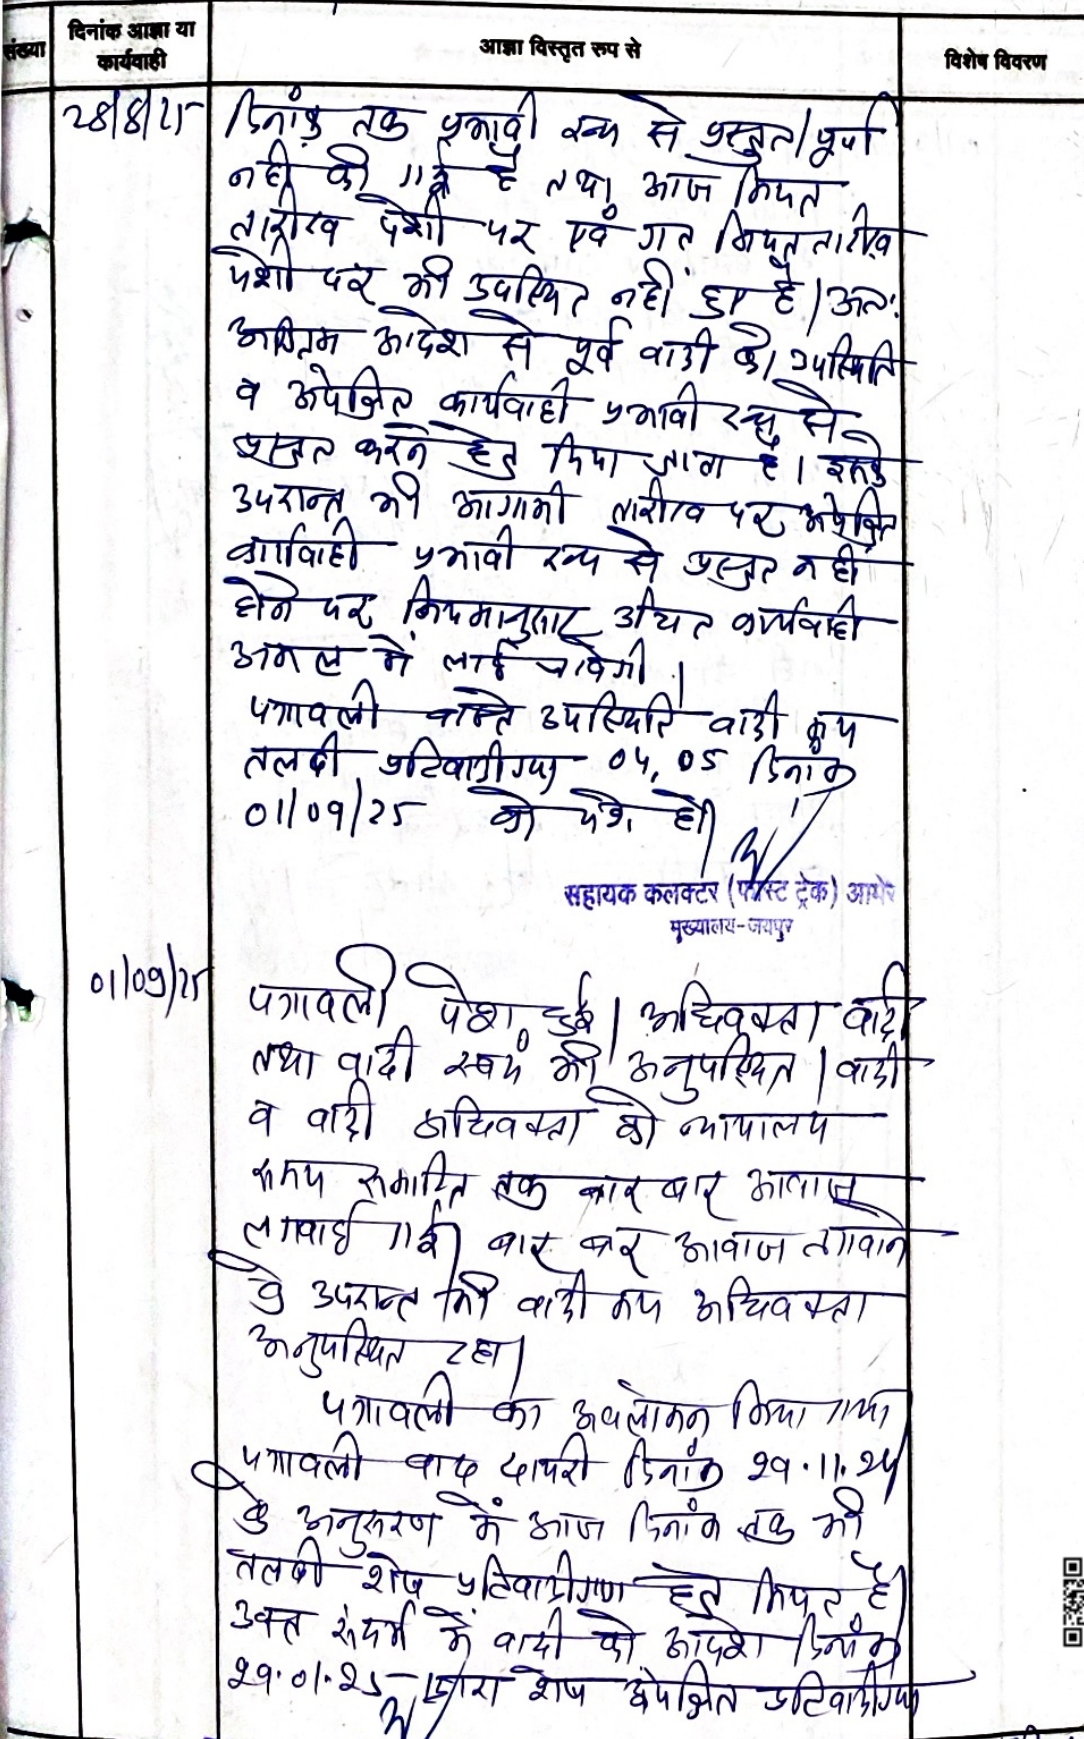 संख्या
दिनांक आज्ञा या
कार्यवाही
आज्ञा विस्तृत रूप से
विशेष विवरण
28/8/25
दिनांक तक प्रभावी रूप से प्रस्तुत/पूर्ण
नहीं की गई है तथा आज नियत
तारीख पेशी पर एवं गत नियत तारीख
पेशी पर भी उपस्थित नहीं हुए है। अतः
अन्तिम आदेश से पूर्व वादी को उपस्थिति
व अपेक्षित कार्यवाही प्रभावी रूप से
प्रस्तुत करने हेतु किया जाता है। इसके
उपरान्त भी आगामी तारीख पर अपेक्षित
कार्यवाही प्रभावी रूप से प्रस्तुत नहीं
होने पर नियमानुसार उचित कार्यवाही
अमल में लाई जावेगी।
पत्रावली वास्ते उपस्थिति वादी मय
तलबी प्रतिवादीगण 04, 05 दिनांक
01/09/25 को पेश हो।
सहायक कलक्टर (फास्ट ट्रेक) आमेर
मुख्यालय-जयपुर
01/09/25
पत्रावली पेश हुई। अधिवक्ता वादी
तथा वादी स्वयं भी अनुपस्थित। वादी
व वादी अधिवक्ता को न्यायालय
समय समाप्ति तक बार बार आवाज
लगवाई गई। बार बार आवाज लगवाने
के उपरान्त भी वादी मय अधिवक्ता
अनुपस्थित रहा।
पत्रावली का अवलोकन किया गया
पत्रावली वाद दायरी दिनांक 29.11.24
के अनुसरण में आज दिनांक तक भी
तलबी शेष प्रतिवादीगण हेतु नियत है।
उक्त संदर्भ में वादी को आदेश दिनांक
29.01.25 द्वारा शेष अपेक्षित प्रतिवादीगण